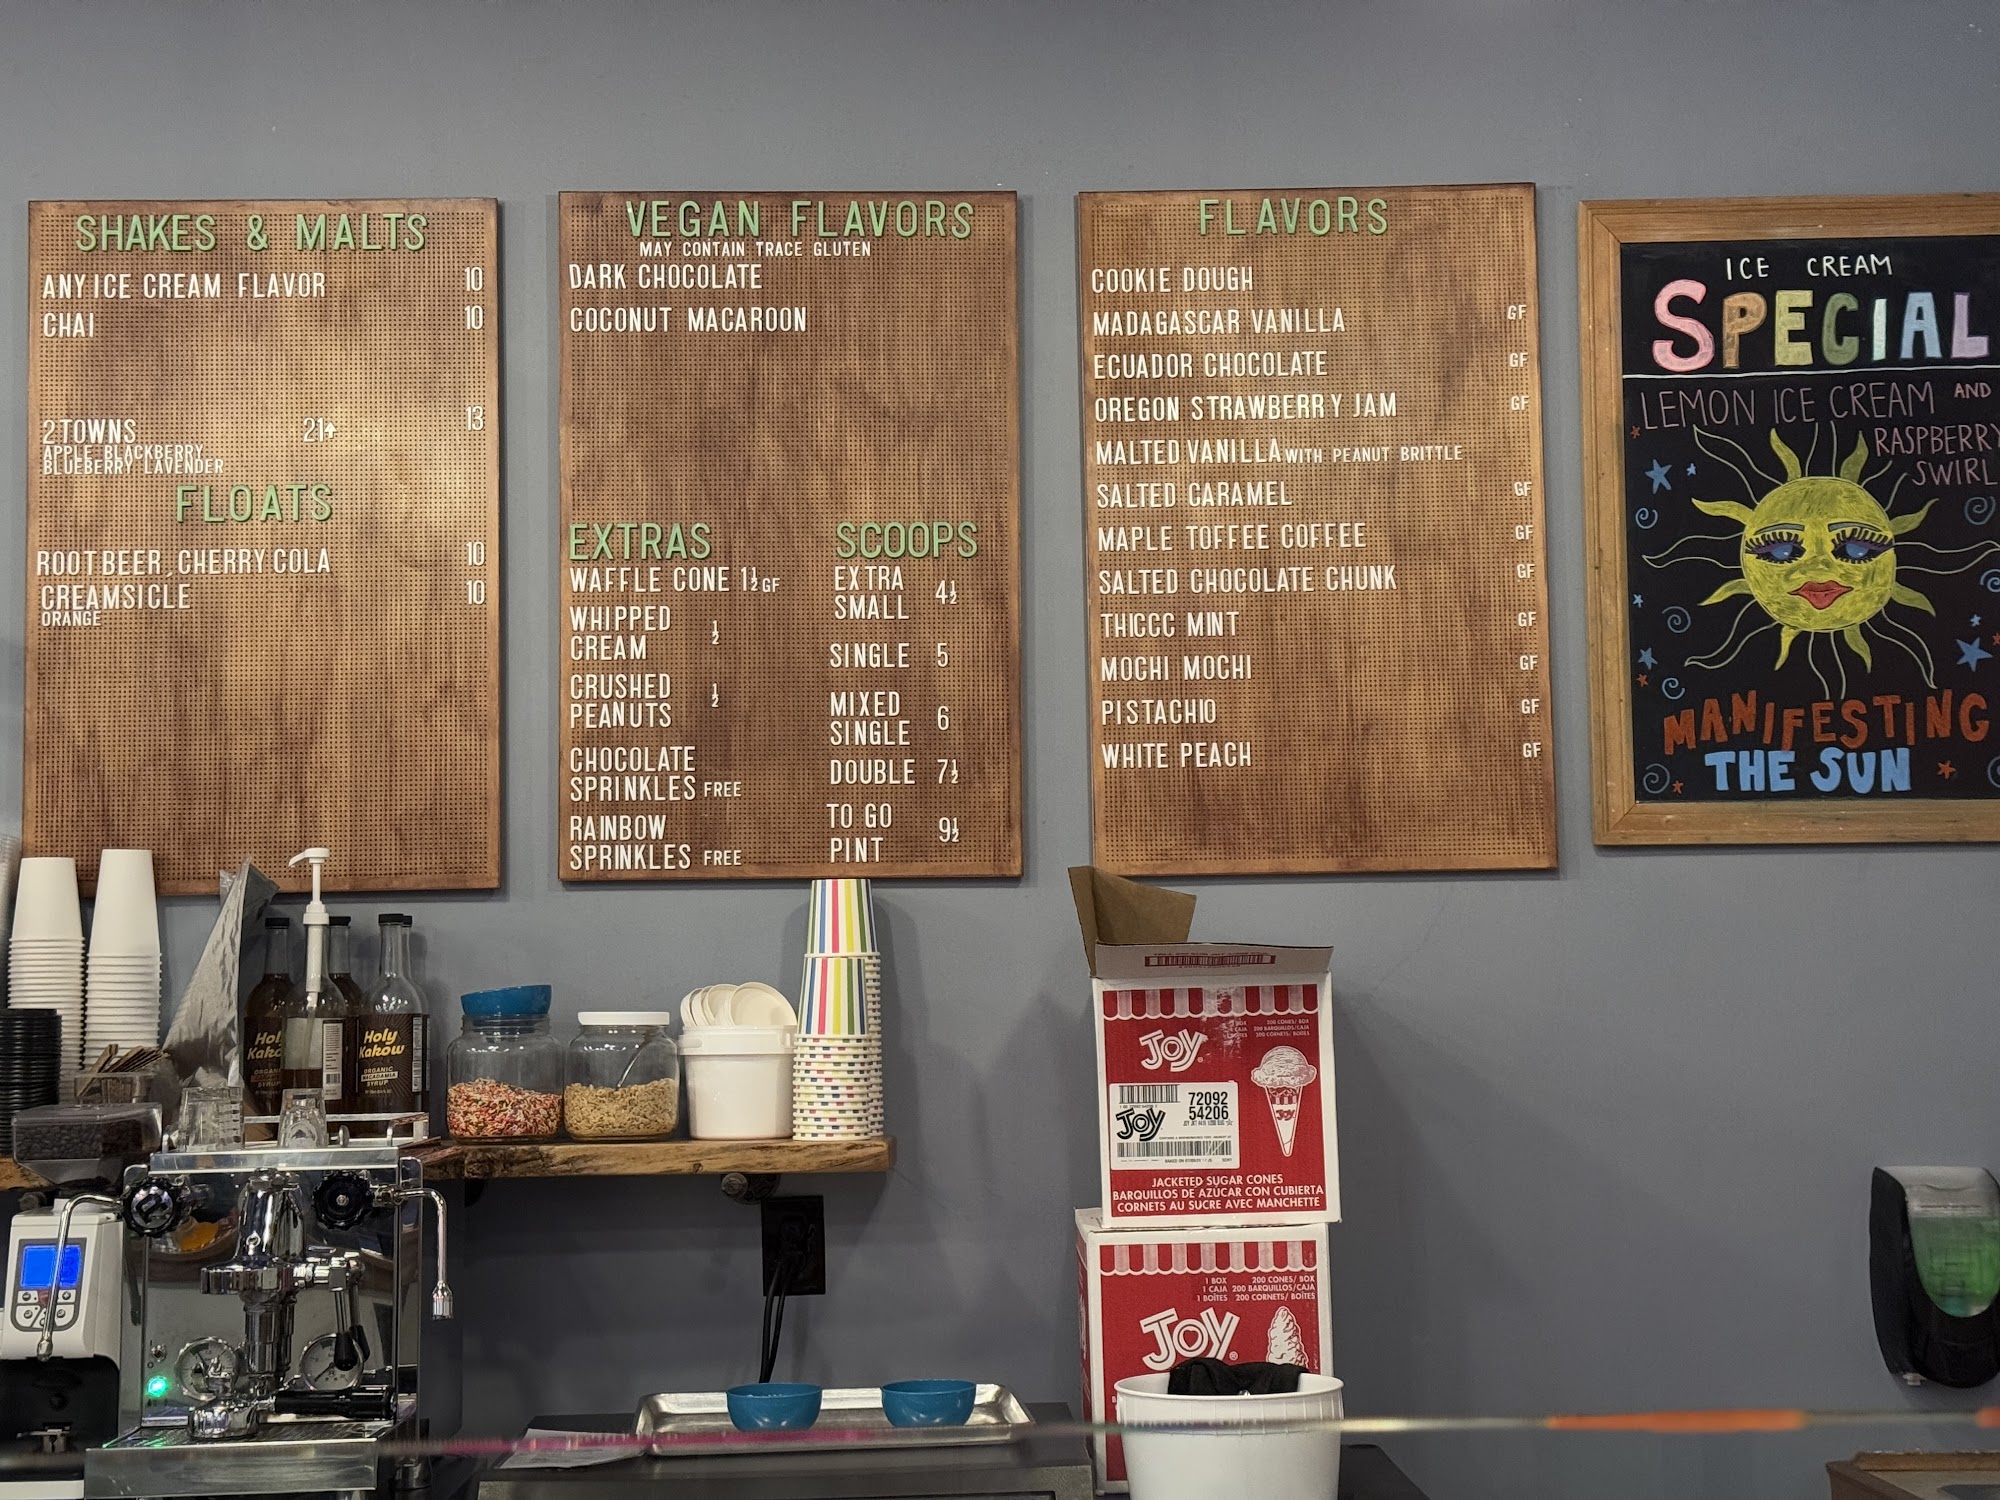 SHAKES & MALTS
ANY ICE CREAM FLAVOR 10
CHAI 10
2 TOWNS 21↑ 13
APPLE BLACKBERRY
BLUEBERRY LAVENDER
FLOATS
ROOT BEER, CHERRY COLA 10
CREAMSICLE 10
ORANGE
VEGAN FLAVORS
MAY CONTAIN TRACE GLUTEN
DARK CHOCOLATE
COCONUT MACAROON
EXTRAS
WAFFLE CONE 1½ GF
WHIPPED
CREAM ½
CRUSHED
PEANUTS ½
CHOCOLATE
SPRINKLES FREE
RAINBOW
SPRINKLES FREE
SCOOPS
EXTRA
SMALL 4½
SINGLE 5
MIXED
SINGLE 6
DOUBLE 7½
TO GO
PINT 9½
FLAVORS
COOKIE DOUGH
MADAGASCAR VANILLA GF
ECUADOR CHOCOLATE GF
OREGON STRAWBERRY JAM GF
MALTED VANILLA WITH PEANUT BRITTLE
SALTED CARAMEL GF
MAPLE TOFFEE COFFEE GF
SALTED CHOCOLATE CHUNK GF
THICCC MINT GF
MOCHI MOCHI GF
PISTACHIO GF
WHITE PEACH GF
ICE CREAM
SPECIAL
LEMON ICE CREAM AND
RASPBERRY
SWIRL
MANIFESTING
THE SUN
Holy
Kakow
ORGANIC
SYRUP
Holy
Kakow
ORGANIC
MACADAMIA
SYRUP
JOY
200 CONES/ BOX
200 BARQUILLOS/CAJA
200 CORNETS/ BOÎTES
72092
54206
JOY
JOY
JACKETED SUGAR CONES
BARQUILLOS DE AZÚCAR CON CUBIERTA
CORNETS AU SUCRE AVEC MANCHETTE
1 BOX 200 CONES/ BOX
1 CAJA 200 BARQUILLOS/CAJA
1 BOÎTES 200 CORNETS/ BOÎTES
JOY